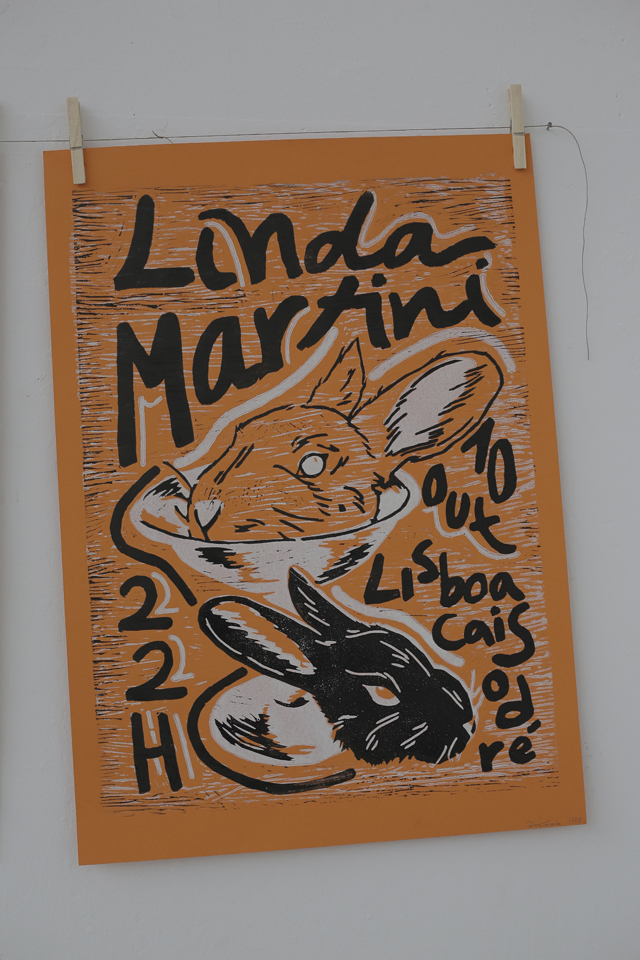 Linda
Martini
10
out
Lisboa
Cais
od
ré
22H